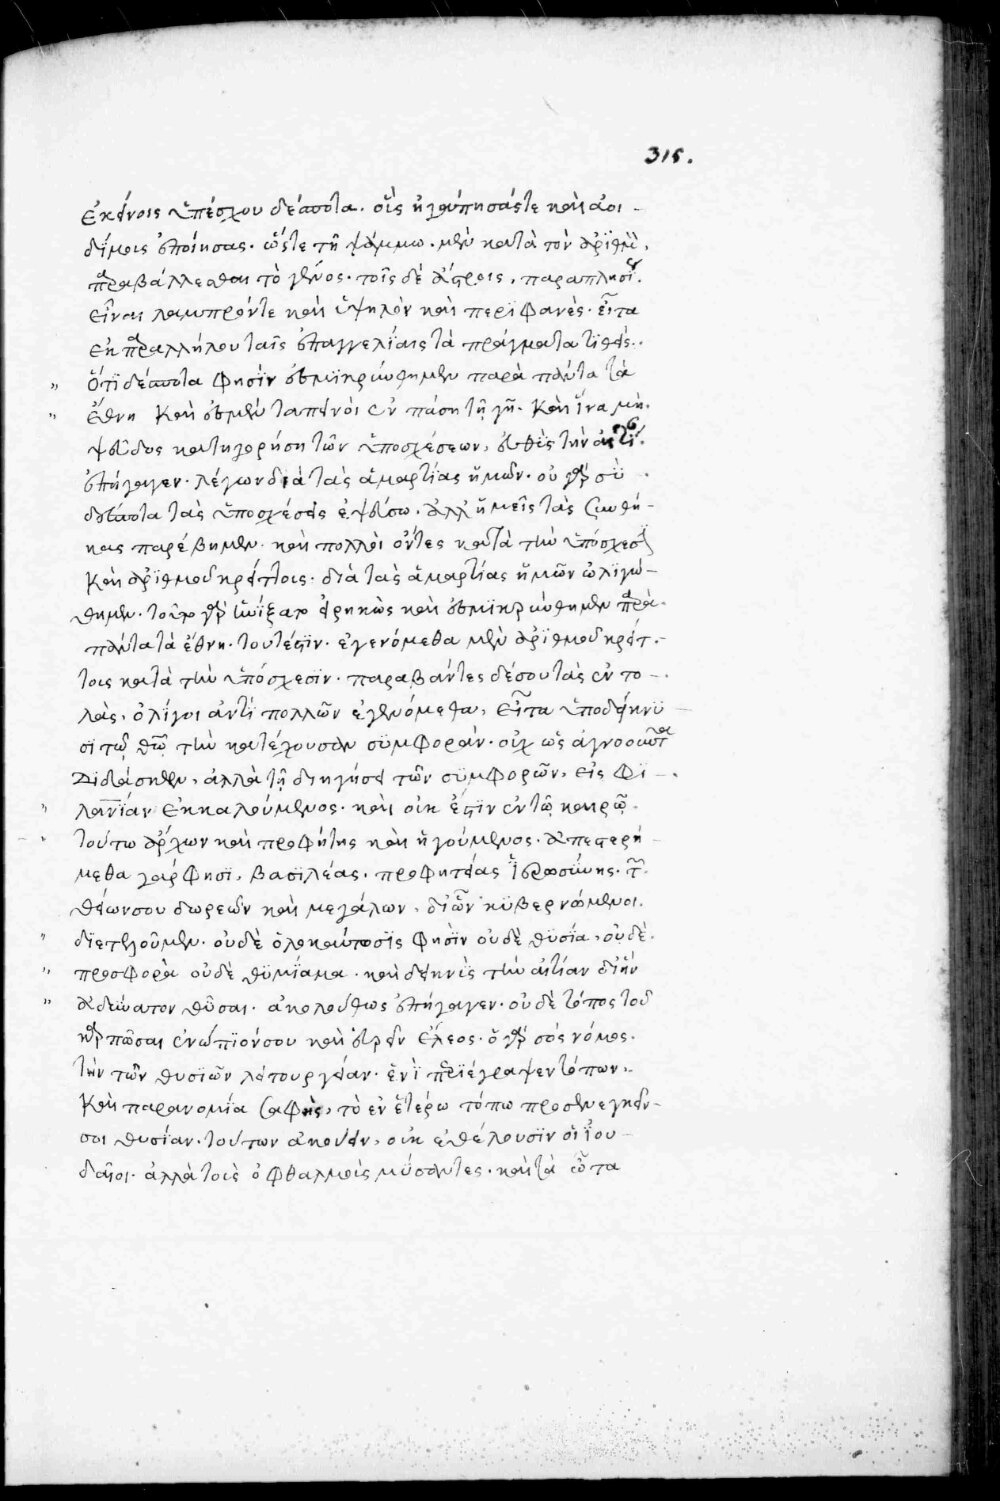 315.
ἐκείνοις ὑπέσχου δέσποτα. οὓς ἠγάπησάς τε καὶ ἀοι-
δίμους ἐποίησας. ὥστε τῇ ψάμμῳ. μὲν κατὰ τὸν ἀριθμὸν,
παραβάλλεσθαι τὸ γένος. τοῖς δὲ ἄστροις, παραπλησί.
εἶναι λαμπρόντε καὶ ὑψηλὸν καὶ περιφανές. εἶτα
ἐκ παραλλήλου ταῖς ἐπαγγελίαις τὰ πράγματα τιθείς.
Ὅτι δέσποτα φησὶν ἐσμικρύνθημεν παρὰ πάντα τὰ
ἔθνη καὶ ἐσμὲν ταπεινοὶ ἐν πάσῃ τῇ γῇ. Καὶ ἵνα μὴ
ψεῦδος κατηγορήσῃ τῶν ὑποσχέσεων, εὐθὺς τὴν αἰτί.
ἐπήγαγεν. λέγων διὰ τὰς ἁμαρτίας ἡμῶν. οὐ γὰρ σὺ
δέσποτα τὰς ὑποσχέσεις ἐψεύσω. ἀλλ ἡμεῖς τὰς συνθή-
κας παρέβημεν. καὶ πολλοὶ ὄντες κατὰ τὴν ὑπόσχεσιν
Καὶ ἀριθμοῦ κρείττοις. διὰ τὰς ἁμαρτίας ἡμῶν ὠλιγώ-
θημεν. τοῦτο γὰρ ᾐνίξατο εἰρηκὼς καὶ ἐσμικρύνθημεν παρὰ
πάντα τὰ ἔθνη. τουτέστιν. ἐγενόμεθα μὲν ἀριθμοῦ κρείτ-
τοις κατὰ τὴν ὑπόσχεσιν. παραβάντες δέ σου τὰς ἐντο-
λὰς, ὀλίγοι ἀντὶ πολλῶν ἐγενόμεθα, Εἶτα ὑποδείκνυ
σι τῷ θῶ τὴν κατέχουσαν συμφοράν. οὐχ ὡς ἀγνοοῦντα
Διδάσκων, ἀλλὰ τῇ διηγήσει τῶν συμφορῶν, εἰς φι-
λανίαν ἐκκαλούμενος. καὶ οὐκ ἔστιν ἐν τῷ καιρῷ
τούτω ἄρχων καὶ προφήτης καὶ ἡγούμενος. ἀπεστερή
μεθα γάρ φησι, βασιλέας. προφητείας ἱερωσύνης. τ.
θείων σου δωρεῶν καὶ μεγάλων, δι ὧν κυβερνώμενοι
διετελοῦμεν. οὐδὲ ὁλοκαύτωσις φησὶν οὐδὲ θυσία, οὐδὲ
προσφορὰ οὐδὲ θυμίαμα. καὶ δεικνὺς τὴν αἰτίαν δι ἣν
ἀδύνατον θῦσαι. ἀκολούθως ἐπήγαγεν. οὐδὲ τόπος τοῦ
καρπῶσαι ἐνώπιόν σου καὶ εὑρεῖν ἔλεος. ὁ γὰρ σὸς νόμος.
τὴν τῶν θυσιῶν λειτουργείαν. ἑνὶ περιέγραψεν τόπων,
Καὶ παρανομία σαφὴς, τὸ ἐν ἑτέρω τόπω προσενεγκεῖν
σοι θυσίαν. τούτων ἀκούειν, οὐκ ἐθέλουσιν οἱ ἰου-
δαῖοι. ἀλλὰ τοὺς ὀφθαλμοὺς μύσαντες. καὶ τὰ ὦτα